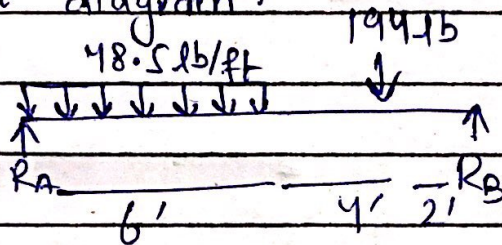 diagram.
48.5 lb/ft
194 lb
RA
RB
6'
4'
2'